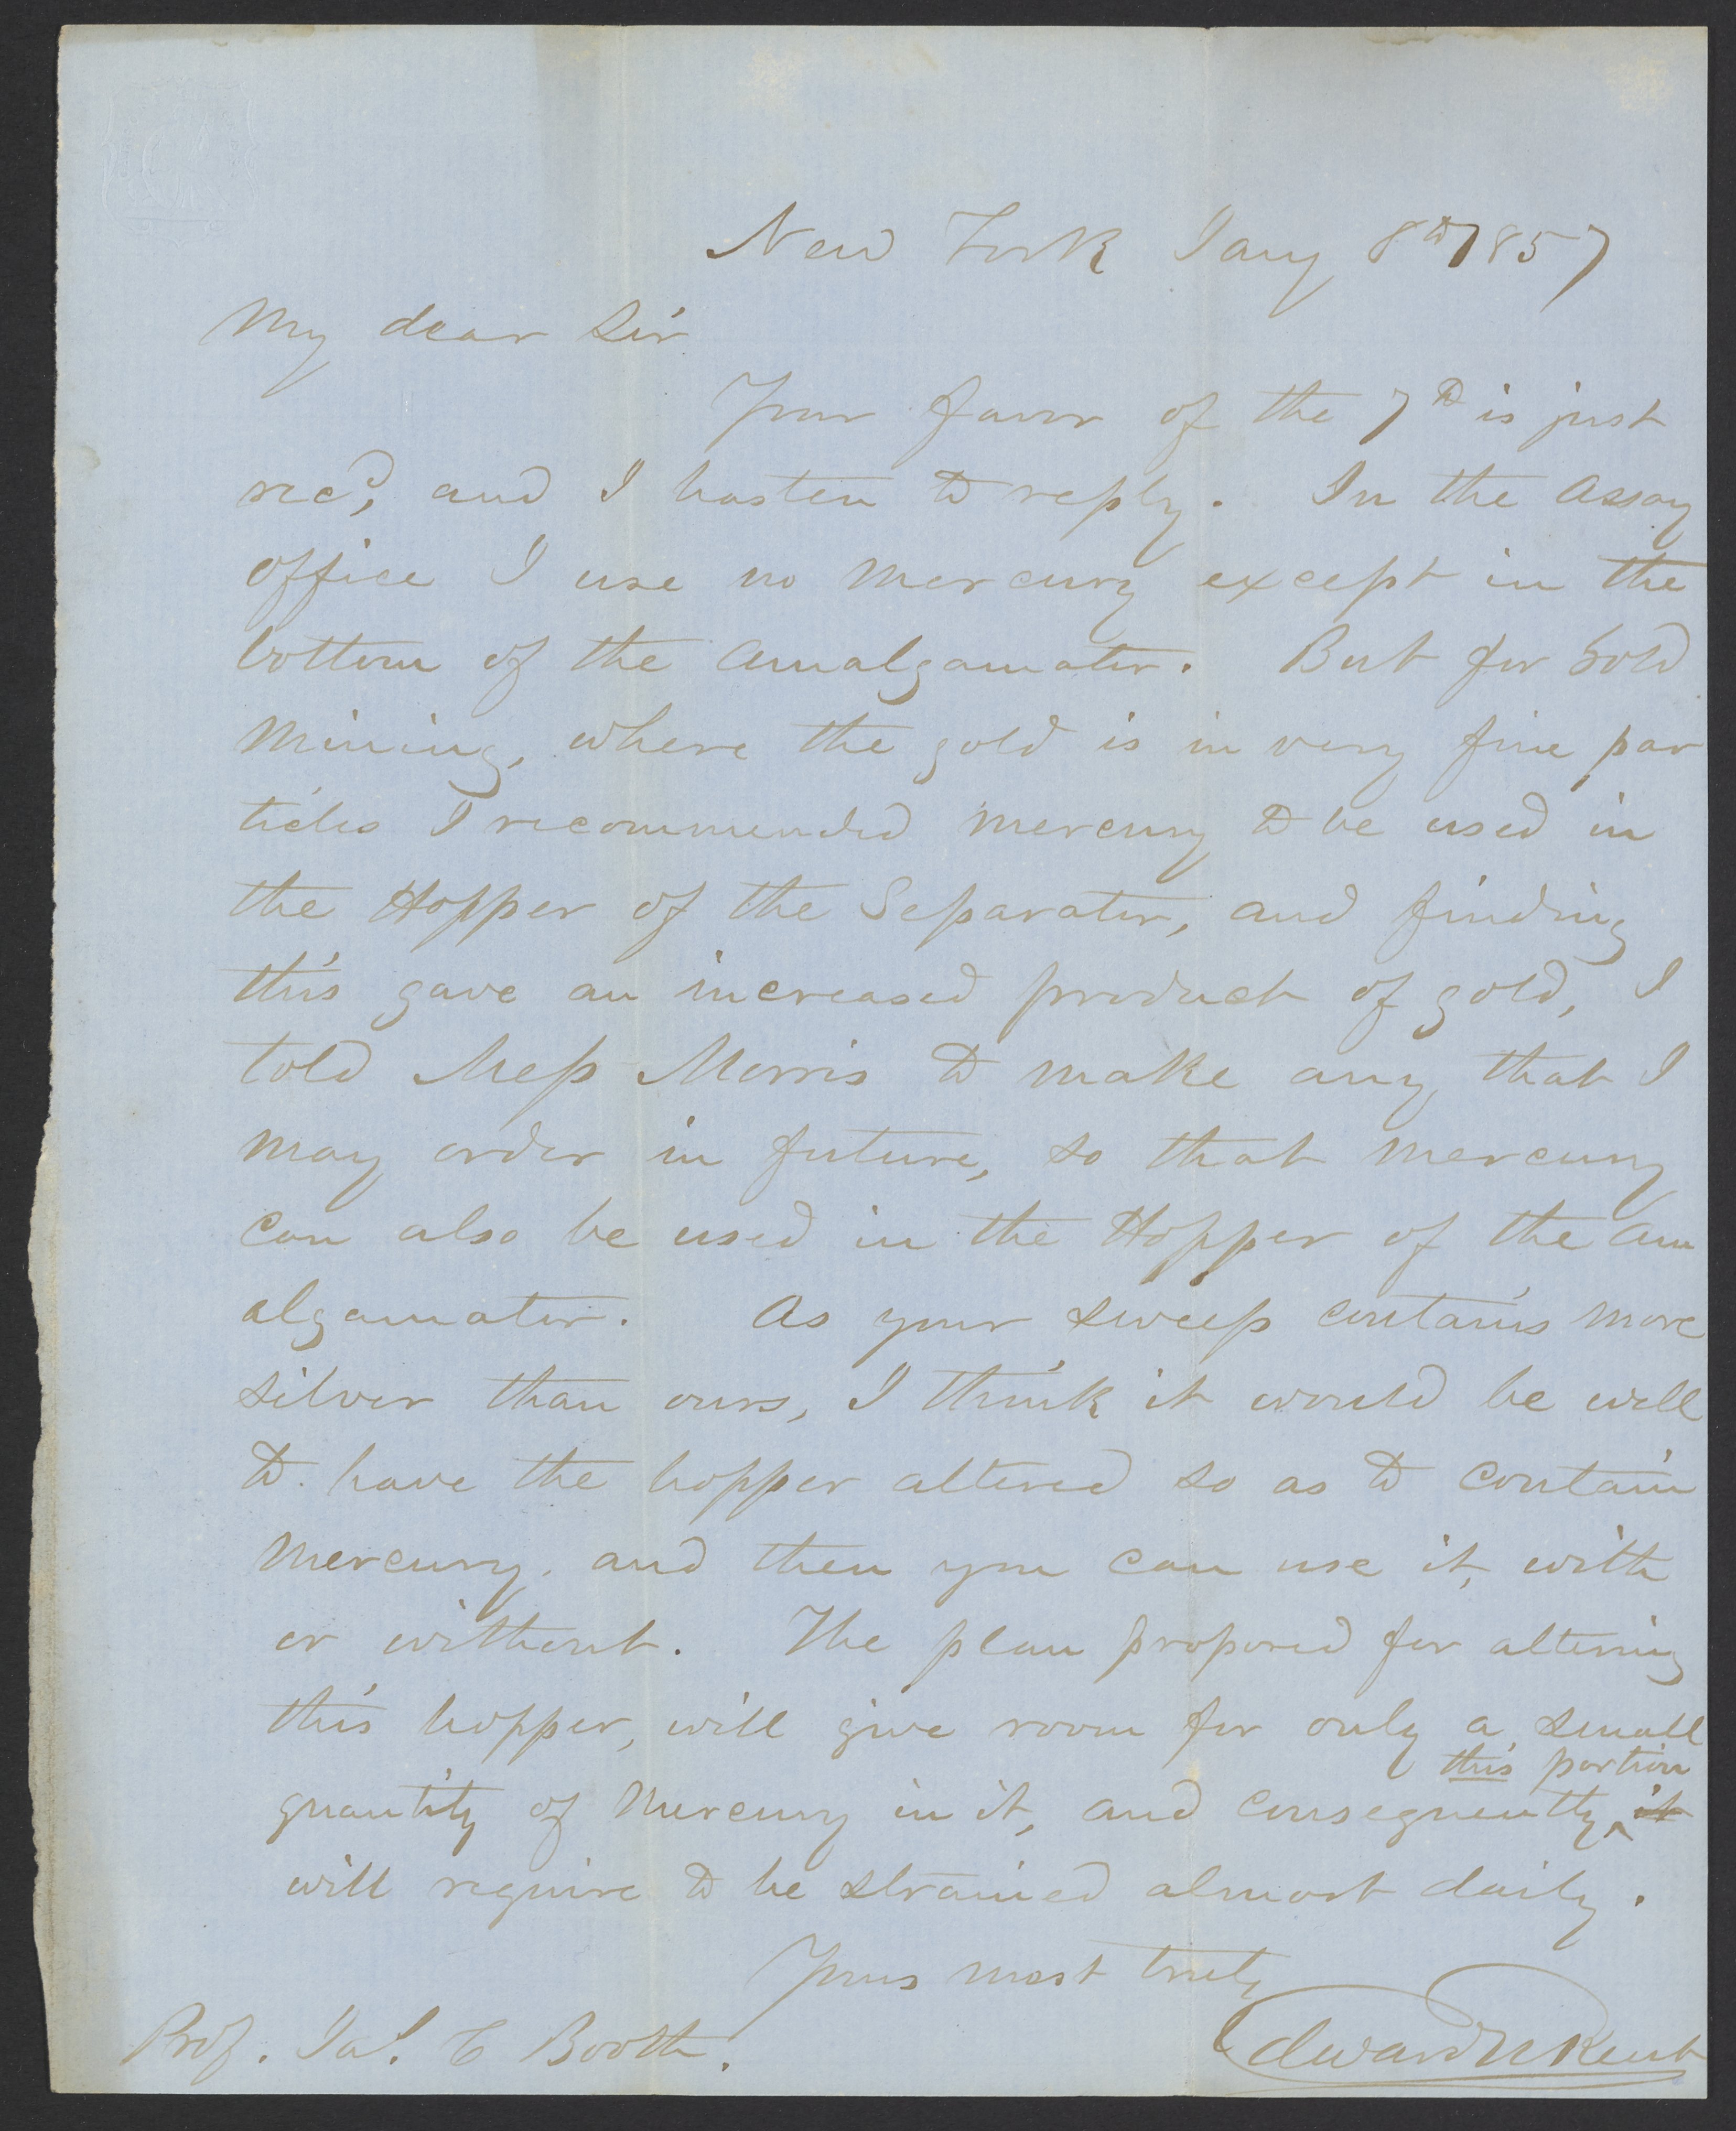 New York Jany 8th 1857
My dear Sir
Your favor of the 7th is just
recd, and I hasten to reply. In the Assay
office I use no mercury except in the
bottom of the Amalgamator. But for Gold
Mining, where the gold is in very fine par
ticles I recommended mercury to be used in
the Hopper of the Separator, and finding
this gave an increased product of gold, I
told Mess Morris to make any that I
may order in future, so that mercury
can also be used in the Hopper of the Am
algamator. As your sweep contains more
silver than ours, I think it would be well
to have the hopper altered so as to contain
Mercury, and then you can use it, with
or without. The plan proposed for altering
this hopper, will give room for only a small
this portion
quantity of Mercury in it, and consequently ^ it
will require to be strained almost daily.
Yours most truly
Prof. Jas. C Booth.
Edward N Kent